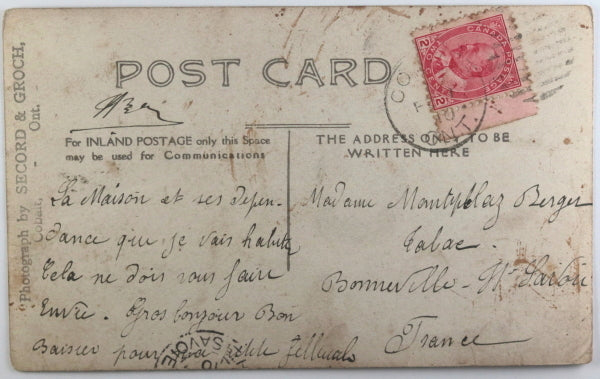 POST CARD
For INLAND POSTAGE only this Space
may be used for Communications
THE ADDRESS ONLY TO BE
WRITTEN HERE
"Photograph by SECORD & GROCH,
Cobalt, - Ont.
La Maison et ses dépen-
dance que je vais habite
Cela ne dois vous faire
Envie. Gros bonjour Bon
Baiser pour
Madame Montplaz Berger
Tabac
Bonneville - Hte Savoie
France
CANADA POSTAGE
2 2
ONT
SAVOIE